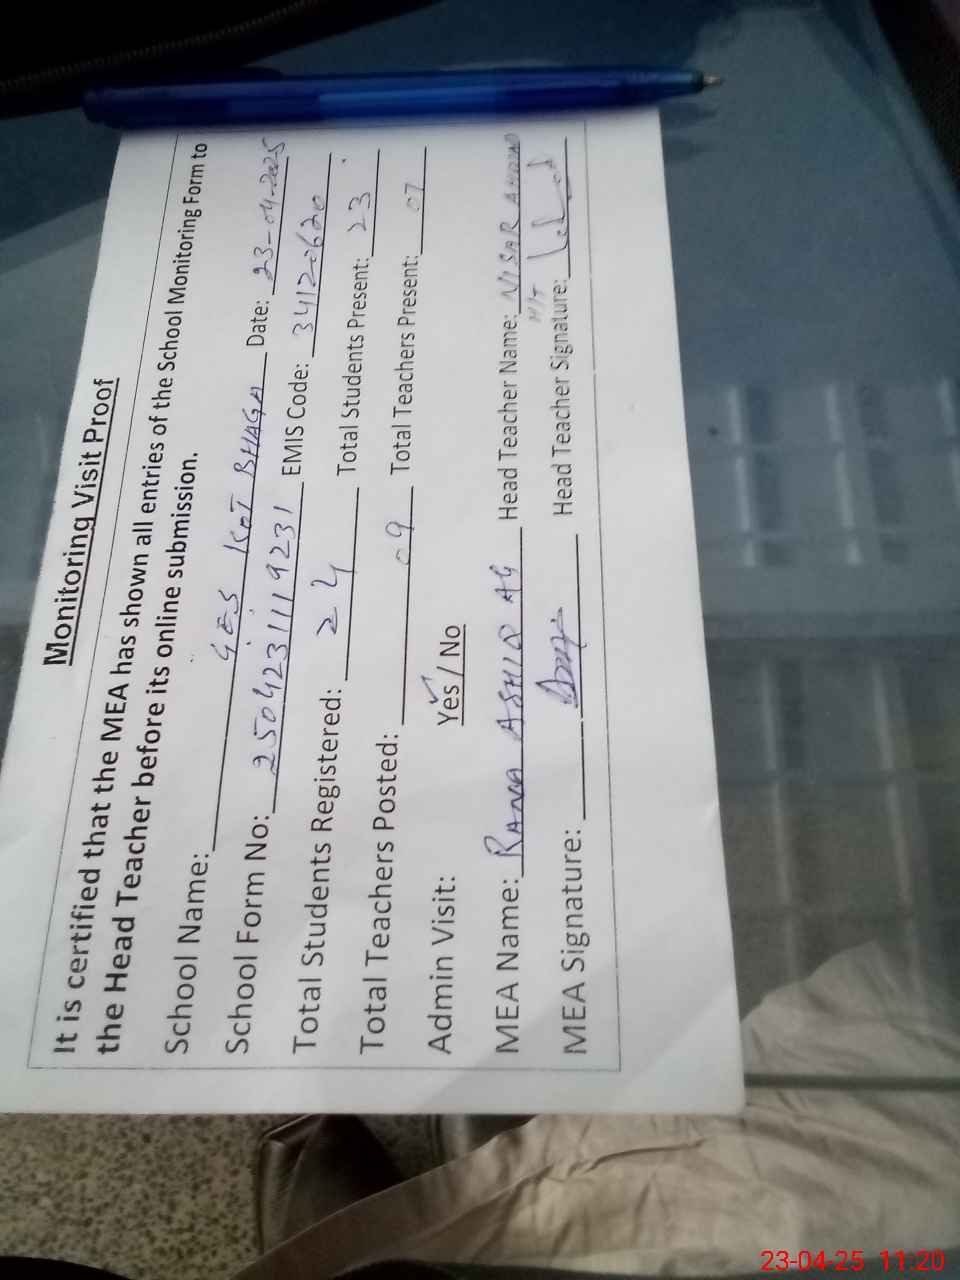 Monitoring Visit Proof
It is certified that the MEA has shown all entries of the School Monitoring Form to
the Head Teacher before its online submission.
School Name: GES KOT BHAGA Date: 23-04-2025
School Form No: 2504231119231 EMIS Code: 34120620
Total Students Registered: 24 Total Students Present: 23
Total Teachers Posted: 09 Total Teachers Present: 07
Admin Visit: Yes / No
MEA Name: RANA ASHFAQ Head Teacher Name: NISAR AHMAD
MEA Signature: Head Teacher Signature:
23-04-25 11:20